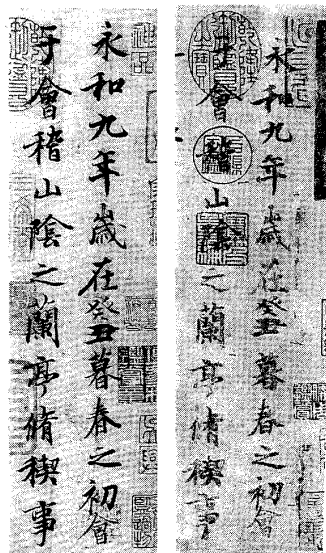 永和九年歲在癸丑暮春之初會
于會稽山陰之蘭亭脩稧事
永和九年歲在癸丑暮春之初會
于會稽山陰之蘭亭脩稧事